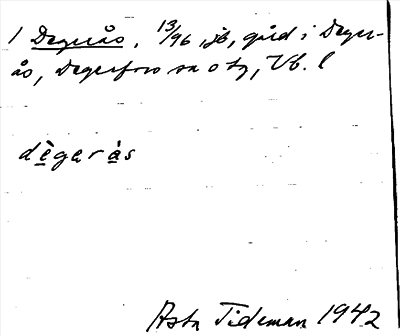 1 Degerås, 13/96, jb, gård i Deger-
ås, Degerfors sn o tg, Vb. l
dègeràs
Asta Tideman 1942